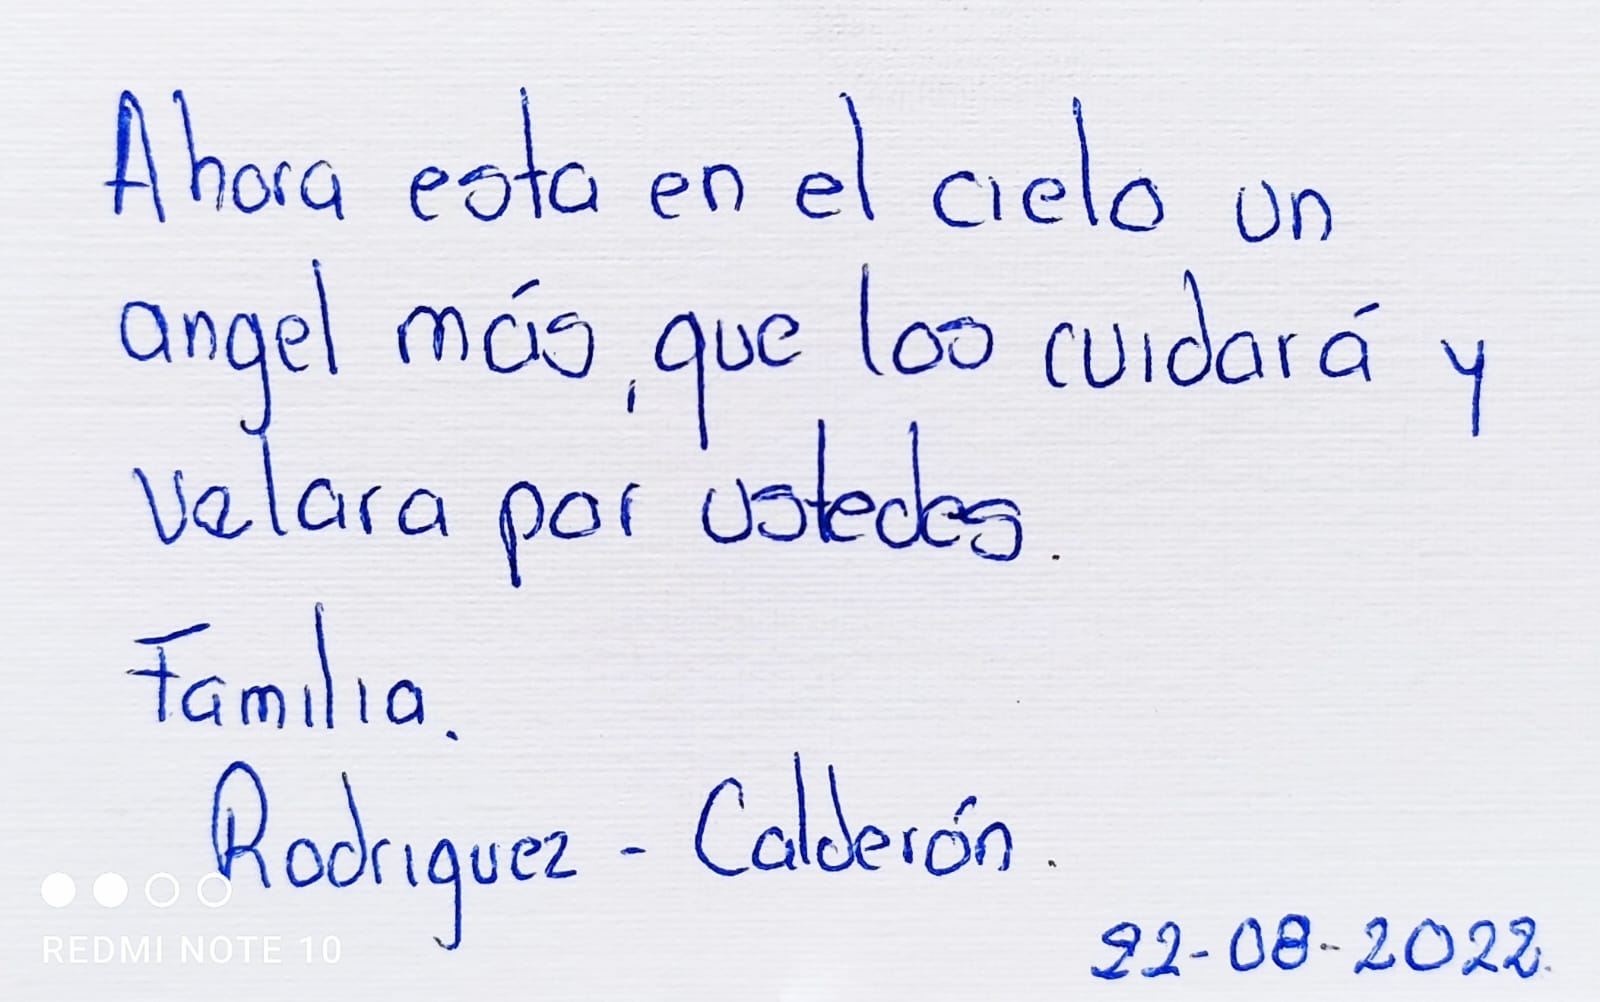 Ahora esta en el cielo un
angel más, que los cuidará y
velara por ustedes.
Familia.
Rodriguez - Calderón.
22-08-2022.
REDMI NOTE 10